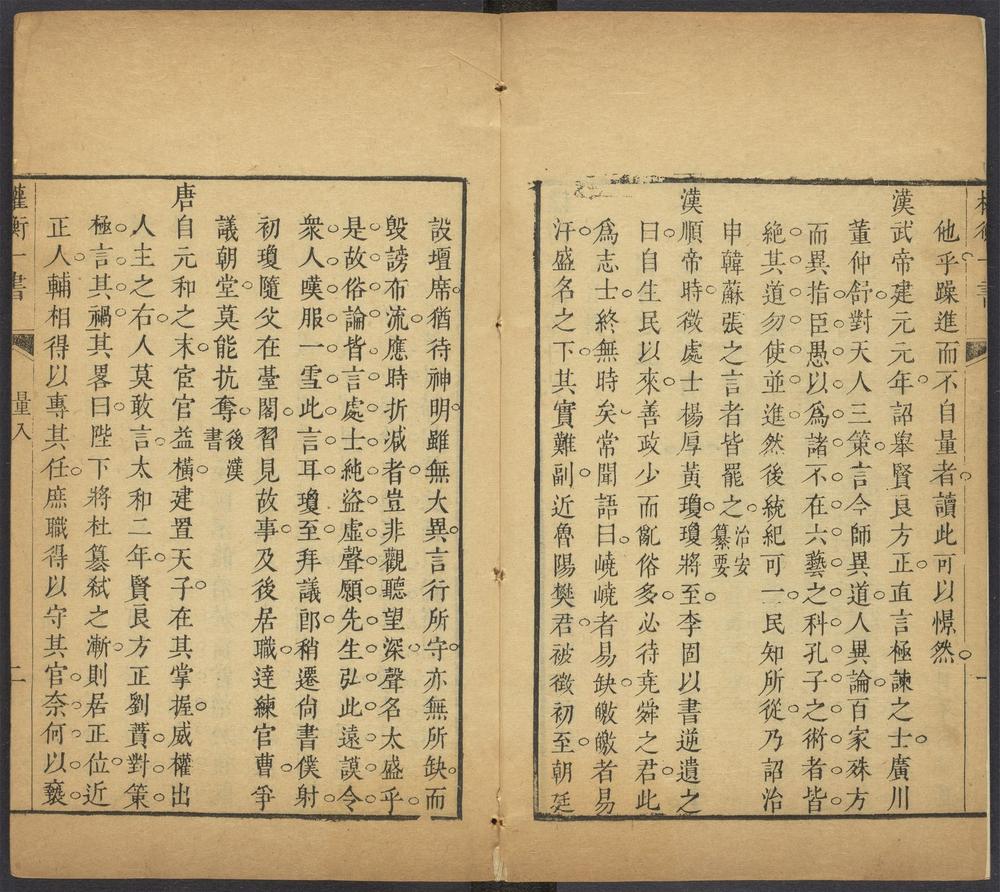 他乎躁進而不自量者讀此可以憬然
漢武帝建元元年詔舉賢良方正直言極諫之士廣川
董仲舒對天人三策言今師異道人異論百家殊方
而異指臣愚以爲諸不在六藝之科孔子之術者皆
絶其道勿使並進然後統紀可一民知所從乃詔治
申韓蘇張之言者皆罷之治安
纂要
漢順帝時徵處士楊厚黃瓊瓊將至李固以書逆遺之
曰自生民以來善政少而亂俗多必待堯舜之君此
爲志士終無時矣常聞語曰嶢嶢者易缺皦皦者易
汙盛名之下其實難副近魯陽樊君被徵初至朝廷
設壇席猶待神明雖無大異言行所守亦無所缺而
毀謗布流應時折減者豈非觀聽望深聲名太盛乎
是故俗論皆言處士純盜虛聲願先生弘此遠謨令
衆人嘆服一雪此言耳瓊至拜議郎稍遷尙書僕射
初瓊隨父在臺閣習見故事及後居職達練官曹爭
議朝堂莫能抗奪後漢
書
唐自元和之末宦官益橫建置天子在其掌握威權出
人主之右人莫敢言太和二年賢良方正劉蕡對策
極言其禍其畧曰陛下將杜簒弒之漸則居正位近
正人輔相得以專其任庶職得以守其官奈何以褻
權衡一書
量入
二